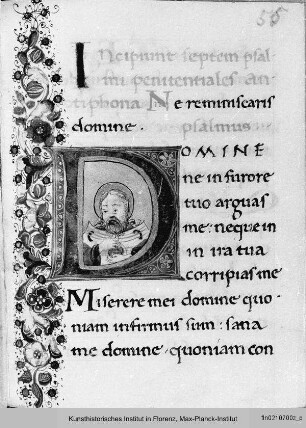 55
Incipiunt septem psal-
mi penitentiales an
tiphona Ne reminiscaris
domine. psalmus
DOMINE
ne in furore
tuo arguas
me: neque in
in ira tua
corripias me
Miserere mei domine quo-
niam infirmus sum: sana
me domine quoniam con
Kunsthistorisches Institut in Florenz, Max-Planck-Institut